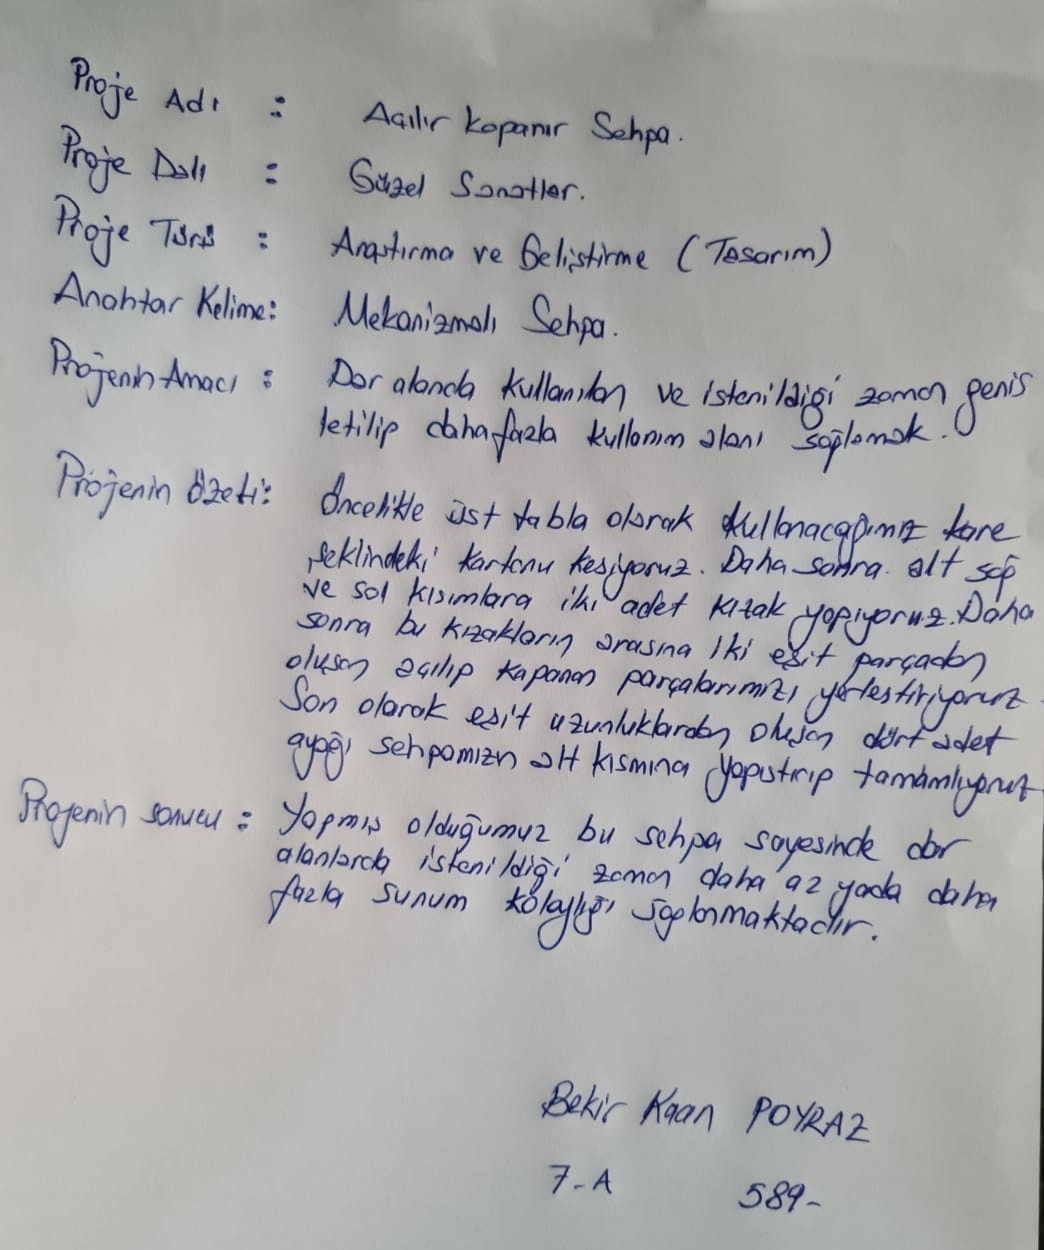 Proje Adı : Açılır kapanır Sehpa.
Proje Dalı : Güzel Sanatlar.
Proje Türü : Araştırma ve Geliştirme (Tasarım)
Anahtar Kelime: Mekanizmalı Sehpa.
Projenin Amacı : Dar alanda kullanılan ve istenildiği zaman geniş
letilip daha fazla kullanım alanı sağlamak.
Projenin Özeti: Öncelikle üst tabla olarak kullanacağımız kare
şeklindeki kartonu kesiyoruz. Daha sonra alt sağ
ve sol kısımlara iki adet kızak yapıyoruz. Daha
sonra bu kızakların arasına iki eşit parçadan
oluşan açılıp kapanan parçalarımızı yerleştiriyoruz.
Son olarak eşit uzunluklardan oluşan dört adet
ayağı sehpamızın alt kısmına yapıştırıp tamamlıyoruz.
Projenin sonucu : Yapmış olduğumuz bu sehpa sayesinde dar
alanlarda istenildiği zaman daha az yada daha
fazla sunum kolaylığı sağlanmaktadır.
Bekir Kaan POYRAZ
7-A 589-